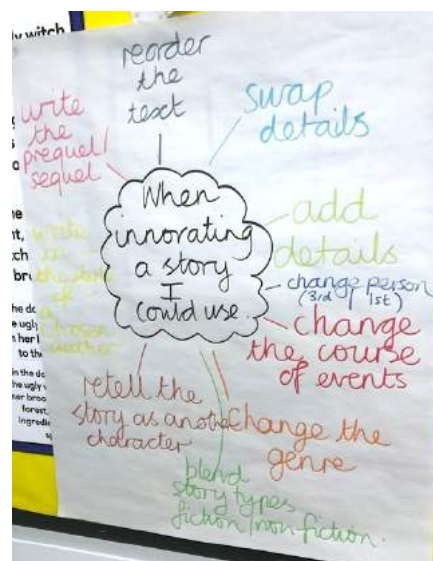 When
innovating
a story
I
could use
reorder
the
text
swap
details
add
details
change person
(3rd / 1st)
change
the course
of events
Change the
genre
blend
story types
fiction/non-fiction.
retell the
story as another
character
write
in
the style
of
a
chosen
author
write
the
prequel/
sequel
ly witch
the ugly
forest,